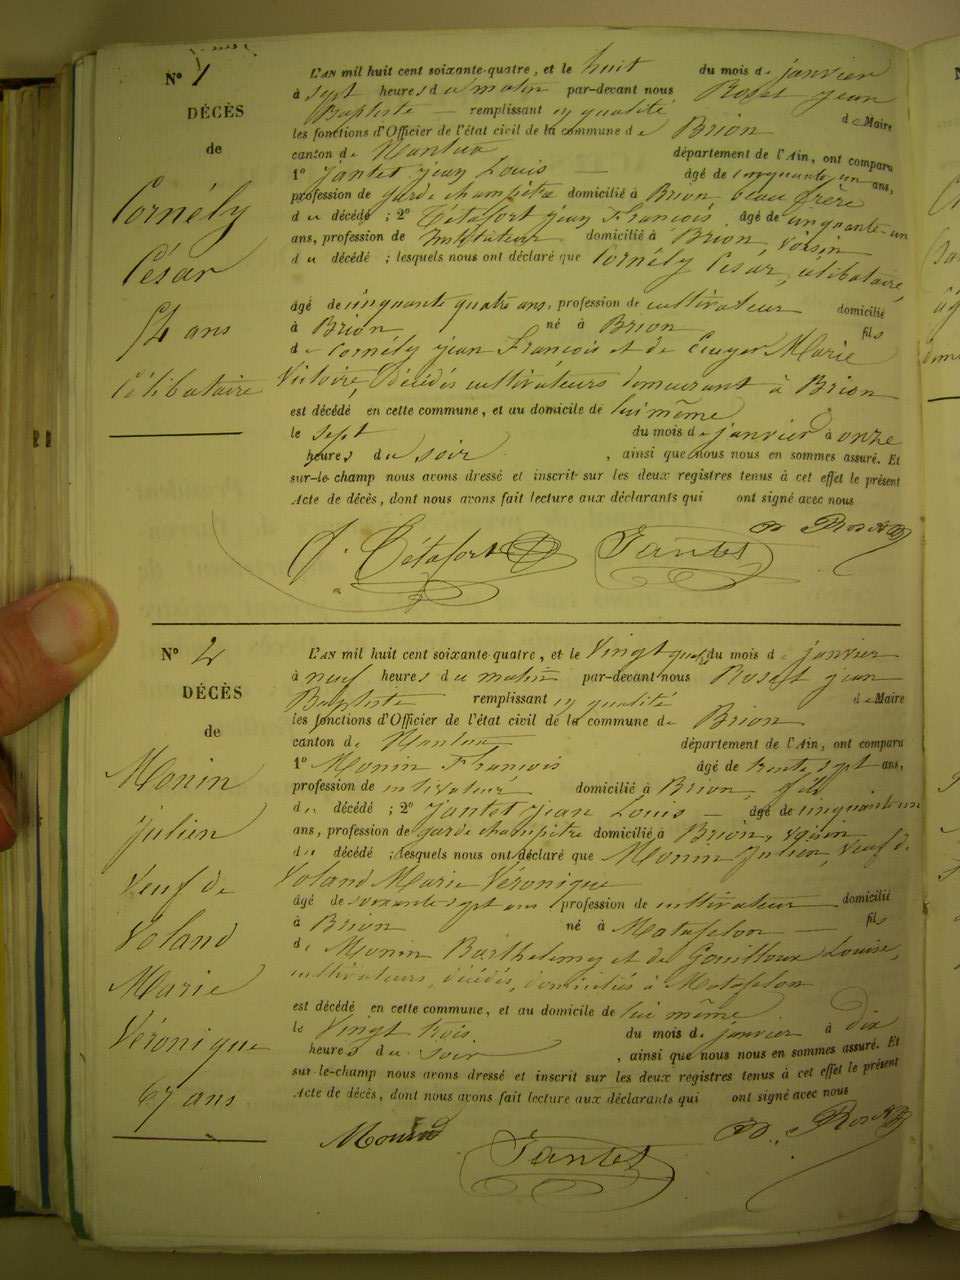 N° 1
DÉCÈS
de
Cornély
César
54 ans
Célibataire
L'AN mil huit cent soixante-quatre, et le huit du mois de janvier
à sept heures du matin par-devant nous Roset jean
Baptiste — remplissant en qualité de Maire
les fonctions d'Officier de l'état civil de la commune de Brion
canton de Nantua département de l'Ain, ont comparu
1° Jantet jean Louis — âgé de cinquante un ans,
profession de garde champêtre domicilié à Brion beau frère
du décédé ; 2° Tétafort jean François âgé de cinquante-un
ans, profession de Instituteur domicilié à Brion, voisin
du décédé ; lesquels nous ont déclaré que Cornély César, célibataire,
âgé de cinquante quatre ans, profession de cultivateur domicilié
à Brion né à Brion fils
de Cornély jean François et de Marie
Victoire, décédés cultivateurs demeurant à Brion
est décédé en cette commune, et au domicile de lui même
le sept du mois de janvier à onze
heures du soir , ainsi que nous nous en sommes assuré. Et
sur-le-champ nous avons dressé et inscrit sur les deux registres tenus à cet effet le présent
Acte de décès, dont nous avons fait lecture aux déclarants qui ont signé avec nous
Roset
J. Tétafort Jantet
N° 2
DÉCÈS
de
Monin
julien
Veuf de
Voland
Marie
Véronique
67 ans
L'AN mil huit cent soixante-quatre, et le vingt quatre du mois de janvier
à neuf heures du matin par-devant nous Roset jean
Baptiste remplissant en qualité de Maire
les fonctions d'Officier de l'état civil de la commune de Brion
canton de Nantua département de l'Ain, ont comparu
1° Monin François âgé de trente sept ans,
profession de cultivateur domicilié à Brion, fils
du décédé ; 2° Jantet jean Louis — âgé de cinquante un
ans, profession de garde champêtre domicilié à Brion, voisin
du décédé ; lesquels nous ont déclaré que Monin Julien, veuf de
Voland Marie Véronique
âgé de soixante sept ans profession de cultivateur domicilié
à Brion né à Matafelon — fils
de Monin Barthelemy et de Gouilloux Louise,
cultivateurs, décédés, domiciliés à Matafelon
est décédé en cette commune, et au domicile de lui même
le vingt trois du mois de janvier à dix
heures du soir , ainsi que nous nous en sommes assuré. Et
sur-le-champ nous avons dressé et inscrit sur les deux registres tenus à cet effet le présent
Acte de décès, dont nous avons fait lecture aux déclarants qui ont signé avec nous
Monin Jantet Roset